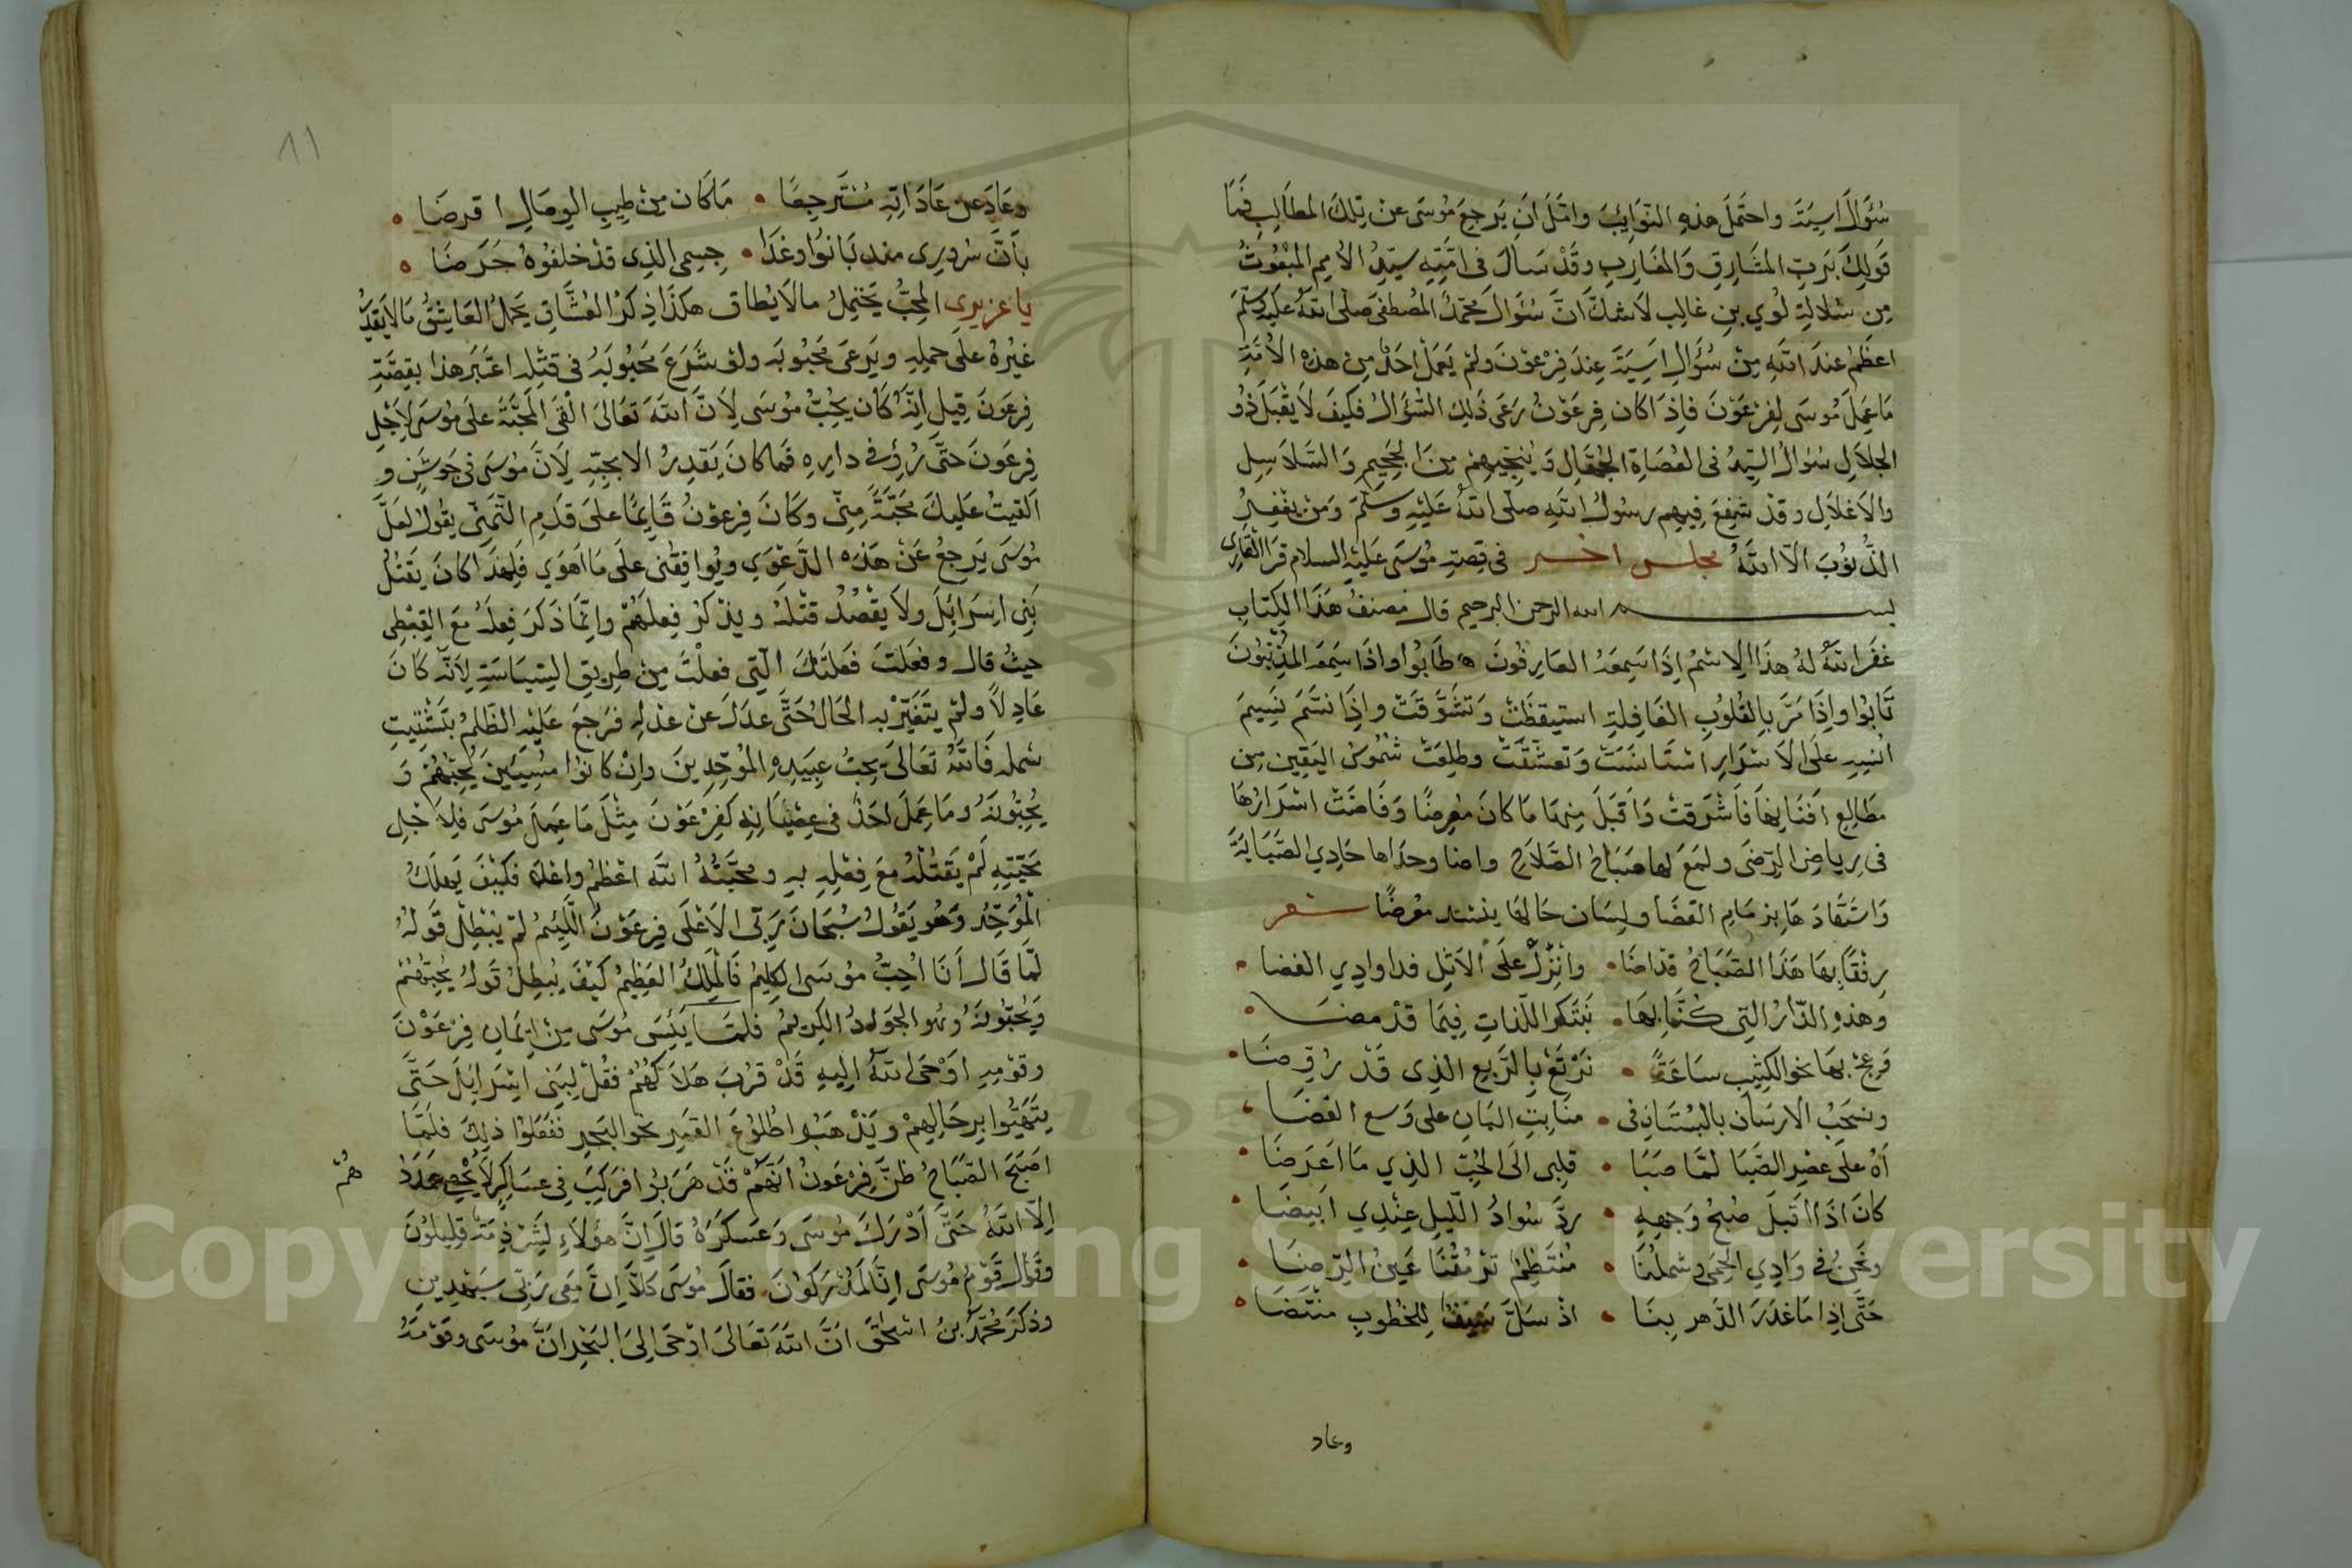 سُؤَالَ اسِيَتَه واحتَمَلَ هذِهِ النّوَايِبَ وامَّلَ انَ يَرجِعَ مُوسَى عن تِلكَ المطَالِبِ فَمَا
قَولكَ بَربِّ المشَارِقِ وَالمغَارِبِ وقَدْ سَالَ فى امَّتِهِ سيّدُ الأمِم المبْعُوثُ
مِن سُلالةِ لُوي بنِ غالِب لاشكَّ انَّ سُؤَالَ محمّدٍ المصطفى صلى الله عليه وسلّم
اعظَمُ عندَ اللهِ مِنْ سُؤَالِ اسِيَةَ عِندَ فِرْعَونَ ولمْ يَعمَلْ احَدٌ مِن هذه الأمّةِ
مَا عَمِلَ مُوسَى لِفِرْعَوْنَ فاِذَا كان فِرعَوْنُ رَعَى ذَلِكَ السُّؤَالَ فكيفَ لاَ يَقْبَلَ ذُو
الجلاَلِ سُؤالُ السّيّدُ فى العُصَاةِ الجُهَّالِ وَ يُنجّيهِم مِنَ الجحِيمِ وَالسّلاَسِلِ
والاغلاَلِ وقدْ شَفِعَ فِيهِم رسُولُ اللهِ صلّى اللهُ عَليْهِ وسَلّمَ وَمَنْ يغْفِرُ
الذُّنوُبَ الّا اللهُ مجلس اخـــر فى قِصةِ مُوسَى عَليْهِ السلام قرَا القَارِى
بســـــم الله الرحمن الرحيم قال مُصنفُ هَذَا الكِتَابِ
غفَرَ اللهُ لهُ هذَا الاِسْمُ اِذَا سَمِعَهُ العارِفُونَ طَابُوا واذَا سَمِعَه المذْنِبُونَ
تَابُوا وإِذَا مَرَّ بِالقُلُوبِ الغَافِلَةِ استيقظَتْ وتشَوَّقَتْ واِذَا نسَّمَ نَسِيمَ
انْسِهِ عَلَى الاَسْرَارِ اسْتَانسَتْ وتعشّقَتْ وطلِعَتْ شمُوسُ اليَقِينِ مِن
مطَالِعِ افْنَانِهَا فَاَشْرَقتْ وَاَقبَلَ مِنهَا مَا كانَ مُعرِضًا وَفَاضَتْ اسْرَارُهَا
فى رِياضِ الرّضَى ولمعَ لها صَبَاحُ الصَّلاَحِ واضا وحدَاها حَادِي الصَّبَابَةِ
وَاسْتَقَادَهَا بزِمَامِ القضَا ولِسَان حَالهَا ينشد معرضًا شــعر
رِفْقًا بهَا هَذَا الصَّبَاحُ قد اضَا • وانْزِلْ علَى الأثلِ فدا وادِي الغضا
وهذهِ الدّارُ التِى كنَّا بهَا • نَبتَكِر اللّذاتِ فِيمَا قدْ مضَا
فَعِجْ بهَا نحوَ الكثِيبِ سَاعَةً • نَرْتَعْ بِالرَّبعِ الذِى قَدْ رُوِّضَا
ونسحَبُ الارسَان بالبُسْتَانِ فى • منَابِتِ البَانِ على وَسعِ الفَضَا
آهُ عَلَى عصْرِ الصِّبَا لَمّا صَبَا • قلبِى الَى الحُبِّ الذِي مَا اعَرَضَا
كانَ اذَا اقبَلَ صُبحُ وَجههِ • ردَّ سُوادُ اللّيلِ عِنْدِي ابَيضَا
ونَحنُ فى وَادِي الحِمَى وشملُنَا • مُنتَظِمْ تَرْمُقُنَا عَينُ الرِّضَا
حَتَّى اِذا مَا غدَرَ الدّهر بِنَا • اذ سَلَّ سَيفٌ لِلخطُوبِ منْتَضَا
وعاد
٨١
وعَادَ عن عَادَاتِهِ مُسْتَرجِعًا • مَا كَان مِنْ طِيبِ الوِصَالِ اقرضَا
بَانَ سُرورِى منذ بَانُوا وغدَا • جِسمِى الذِى قدْ خلفُوهُ حَرَضَا
يا عزيزِى المحبُّ يحتَمِلُ مالاَ يُطاق هكذَا ذِكرُ العُشَّاقِ يَحمِلُ العَاشِقُ مَالاَ يَقدِرُ
غيْرُهُ علَى حملِهِ ويَرعَى مَحبُوبَه ولوْ شَرَعَ مَحبُوبَهُ فى قتْلِه اعتَبَر هذا بقِصَّةِ
فِرعَونَ قِيلَ اِنَّهُ كان يُحِبُّ مُوسَى لِانَّ اللهَ تعَالىَ الْقَى المَحبَّةَ علَى مُوسَى لاَجْلِ
فِرعَونَ حتَّى رُبِّىَ فى دارِهِ فمَا كانَ يَقدِرُ الا بحُبِّهِ لِاَنّ مُوسَى فى جَوشَنٍ و
اَلقيتُ عَليكَ محَبَّةً مِنّى وكَانَ فِرعوْنُ قَايمًا علَى قدَمِ التّمَنّى يقُولُ لعَلَّ
مُوسَى يَرجعُ عَنْ هَذِه الدّعْوَي ويُوافِقُنى علَى مَا اَهوَي فَلِهَذَا كانَ يَقتُلُ
بَنِى اِسرَائِلَ ولاَ يقصُدُ قتْلهُ ويذكرُ فِعلَهُمْ وانّمَا ذَكَرَ فِعلَهُ مَعَ القِبْطِى
حيثُ قال وفعَلتَ فَعلتَكَ الّتِى فعلْتَ مِنْ طرِيقِ السّيَاسَةِ لِانّه كانَ
عَادِلاً ولمْ يتَغَيّرْ به الحَالُ حَتَّى عدَلَ عنْ عدْلِهِ فرَجعَ عَليْهِ الظّلمُ بتَشْتِيتِ
شمله فَاللهُ تعَالىَ يحِبُّ عبِيَدِهِ المُوَحِّدِينَ وانْ كانُوا مُسِيئينَ يُحِبّهُمْ وَ
يُحِبُّونَهُ ومَا عِمَلَ احَدٌ فى عِصْيَانِهِ كَفِرْعَوْنَ مِثْلَ مَا عِمِلَ مُوسَى فلاَجْلِ
مَحَبّتِهِ لَمْ يَقتُلْهُ مَعَ فِعْلِهِ بهِ ومحَبّةُ اللهِ اعْظمُ واعْلَا فكَيْفَ يَهلكُ
الْمُوَحِّد وَهُو يَقُولُ سُبْحَانَ رَبّى الاَعْلَى فِرعَوْنَ اللّئِيْمُ لَمْ يُبْطِلْ قَولهُ
لَمّا قَالَ اَنَا اُحِبُّ مُوسَى الكلِيمُ فَالمَلكُ العَظِيْمُ كَيْفَ يُبطِلُ قَولهُ يُحِبّهُمْ
وَيُحبّونَهُ وهُو الجوَادُ الكرِيمُ فلمّـا يَئِسَ مُوسَى مِنْ اِيَمانِ فِرعَوْنَ
وقوْمِهِ اوْحَى اللهُ اِليهِ قَدْ قرُبَ هَلاَكُهُمْ فقُلْ لِبنِى اِسْرَايِلَ حَتَّى
يتَهَيّئُوا بِرِحَالِهِمْ وَيَذْهَبُوا طُلُوعَ القمَرِ نحو البَحرِ ففَعلوُا ذلِكَ فلَمّا
اصْبَحَ الصَّبَاحُ ظنَّ فِرْعَونُ انَّهُمْ قَدْ هَرَبُوا فركِبَ فِى عسَاكِرِ لاَ يُحْصِ عدَدَ
هُمْ
اِلّا اللهُ حَتَّى اَدْرَكَ مُوسَى وَعَسكَرَهُ قالَ اِنَّ هؤُلاَءِ لَشِرْذِمَةٌ قلِيلُونَ
وقَالَ قَوْمُ مُوسَى اِنَّا لَمُدْرَكُونَ فقالَ مُوسَى كلاَّ اِنَّ مَعِى رَبّى سَيَهْدِينِ
وذكرَ مُحمّدُ بنُ اسْحٰقَ انَّ اللهَ تعَالىَ اوْحَى اِلىَ البَحْرِ انَّ مُوسَى وقَوْمَهُ
Copyright © King Saud University
1957